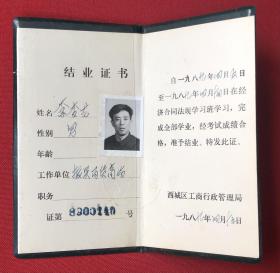 结业证书
姓名
性别 男
年龄
工作单位
职务
证第 8900140 号
自一九八 年 月 日
至一九八 年 月 日在经
济合同法规学习班学习，完
成全部学业，经考试成绩合
格，准予结业、特发此证。
西城区工商行政管理局
一九八 年 月 日